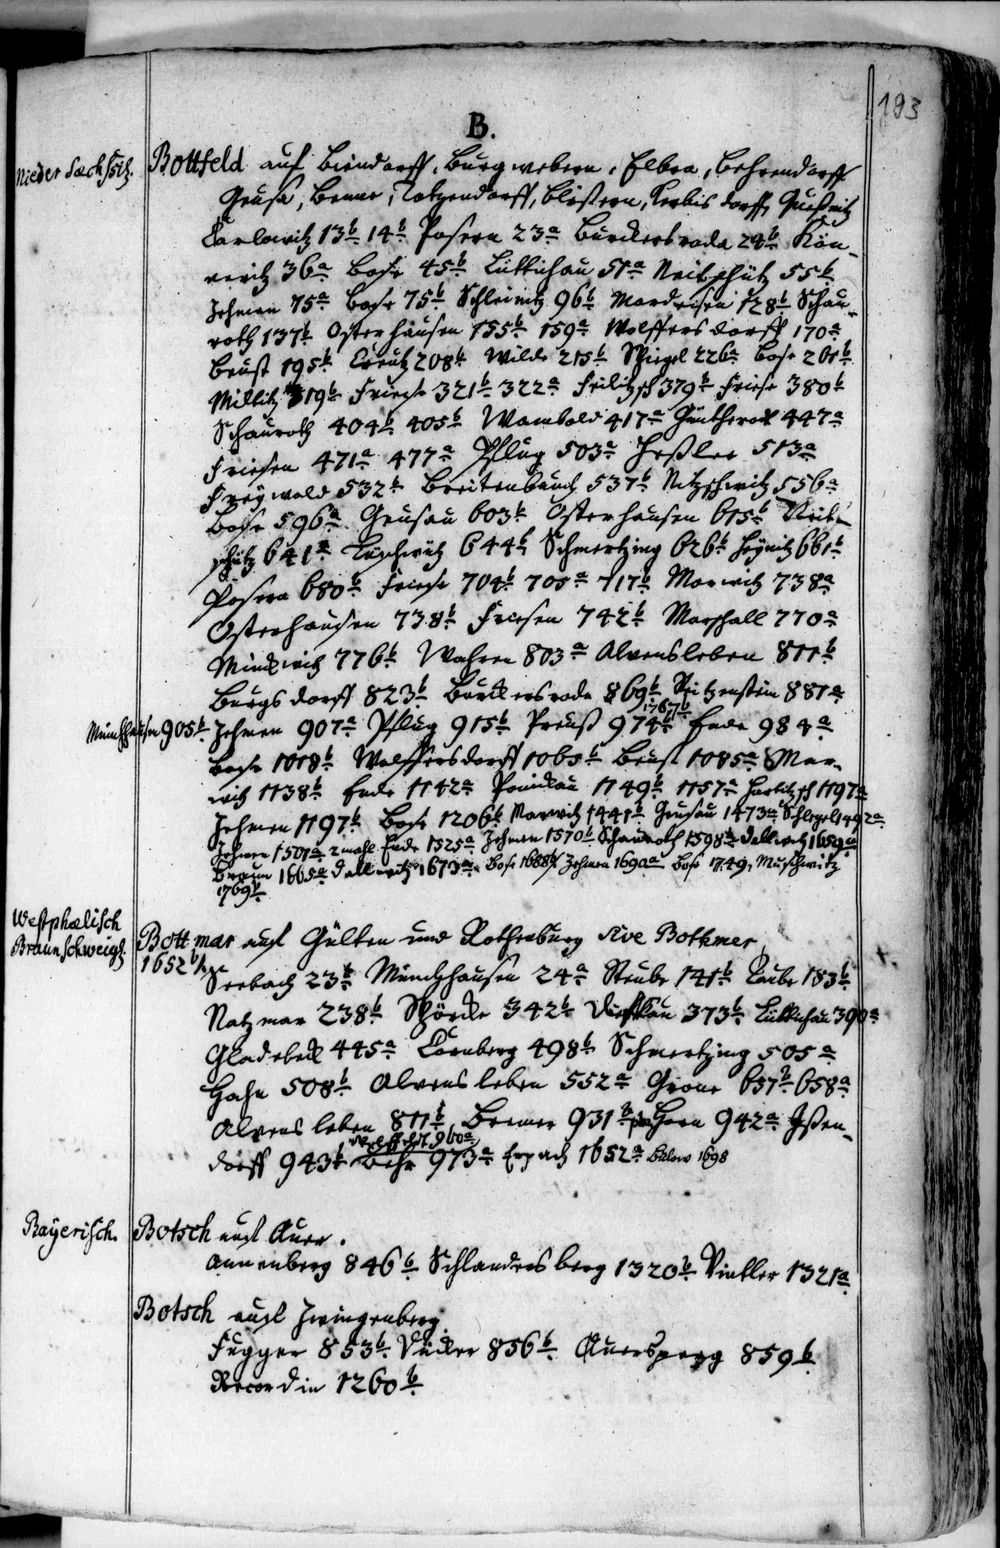 193
B.
Nieder Sæchsisch.
Bottfeld auf Bündorff, Burgwerben, Elben, Behrendorff
Geusa, Benne, Totzendorff, Blößern, Korbisdorff, Queßnitz
Carlowitz 13b 14b Posern 23a Burckersroda 24b Kön-
neritz 36a Bose 45b Lüttichau 51a Neitschütz 55b
Zehmen 75a Bose 75b Schleinitz 96b Mordeisen 128b Schau-
roth 137b Osterhausen 155b 159a Wolffersdorff 170a
Beust 195b Creutz 208b Wilde 215b Spiegel 226a Bose 261b
Miltitz 319b Friese 321b 322a Feilitzsch 379b Friese 380b
Schauroth 404b 405b Wambold 417a Güntherot 447a
Friesen 471a 477a Pflug 503a Heßler 513a
Freywald 532b Breitenbauch 537b Nitzschwitz 556a
Bose 596a Geusau 603b Osterhausen 615b Neit-
schütz 641a 644b Schmertzing 626b Heynitz 661b
Posern 680b Friese 704b 705a 717b Marwitz 738a
Osterhausen 738b Friesen 742b Marschall 770a
Minckwitz 776b Wahren 803a Alvensleben 811b
Burgsdorff 823b Burckersroda 869b Reitzenstein 881a
Münchhausen 905b Zehmen 907a Pflug 915b Preuß 974b 1767b Ende 984a
Bose 1018b Wolffersdorff 1065b Beust 1085a Mar-
witz 1138b Ende 1142a Ponickau 1149b 1157a 1197a
Zehmen 1197b Bose 1206b Marwitz 1441b Geusau 1473a Schlegel 1492a
Zehmen 1501a 2 mahl Ende 1525a Zehmen 1570b Schauroth 1598b Dallwitz 1659a
Braun 1665a Dallwitz 1673a Bose 1688b Zehmen 1690a Bose 1749, Muschwitz
1769b
Westphælisch
Braunschweig.
Bottmar auf Gülten und Rothenburg sive Bothmer
1652b/
Seebach 23b Münchhausen 24a Steube 141b Taube 183b
Natzmar 238b Spörcke 342b Dießkau 373b Lüttichau 390a
Gladebeck 445a Cornberg 498b Schmertzing 505a
Hahn 508b Alvensleben 552a Grone 657b 658a
Alvensleben 811b Bremer 931b Horn 942a Issen-
dorff 943b 960a Behr 973a 1652a Bülow 1698
Bayerisch.
Botsch auf Auer.
Annenberg 846b Schlandersberg 1320b Vintler 1321a
Botsch auf Zwingenberg.
Fugger 853b 856b Auersperg 859b
Recordin 1260b